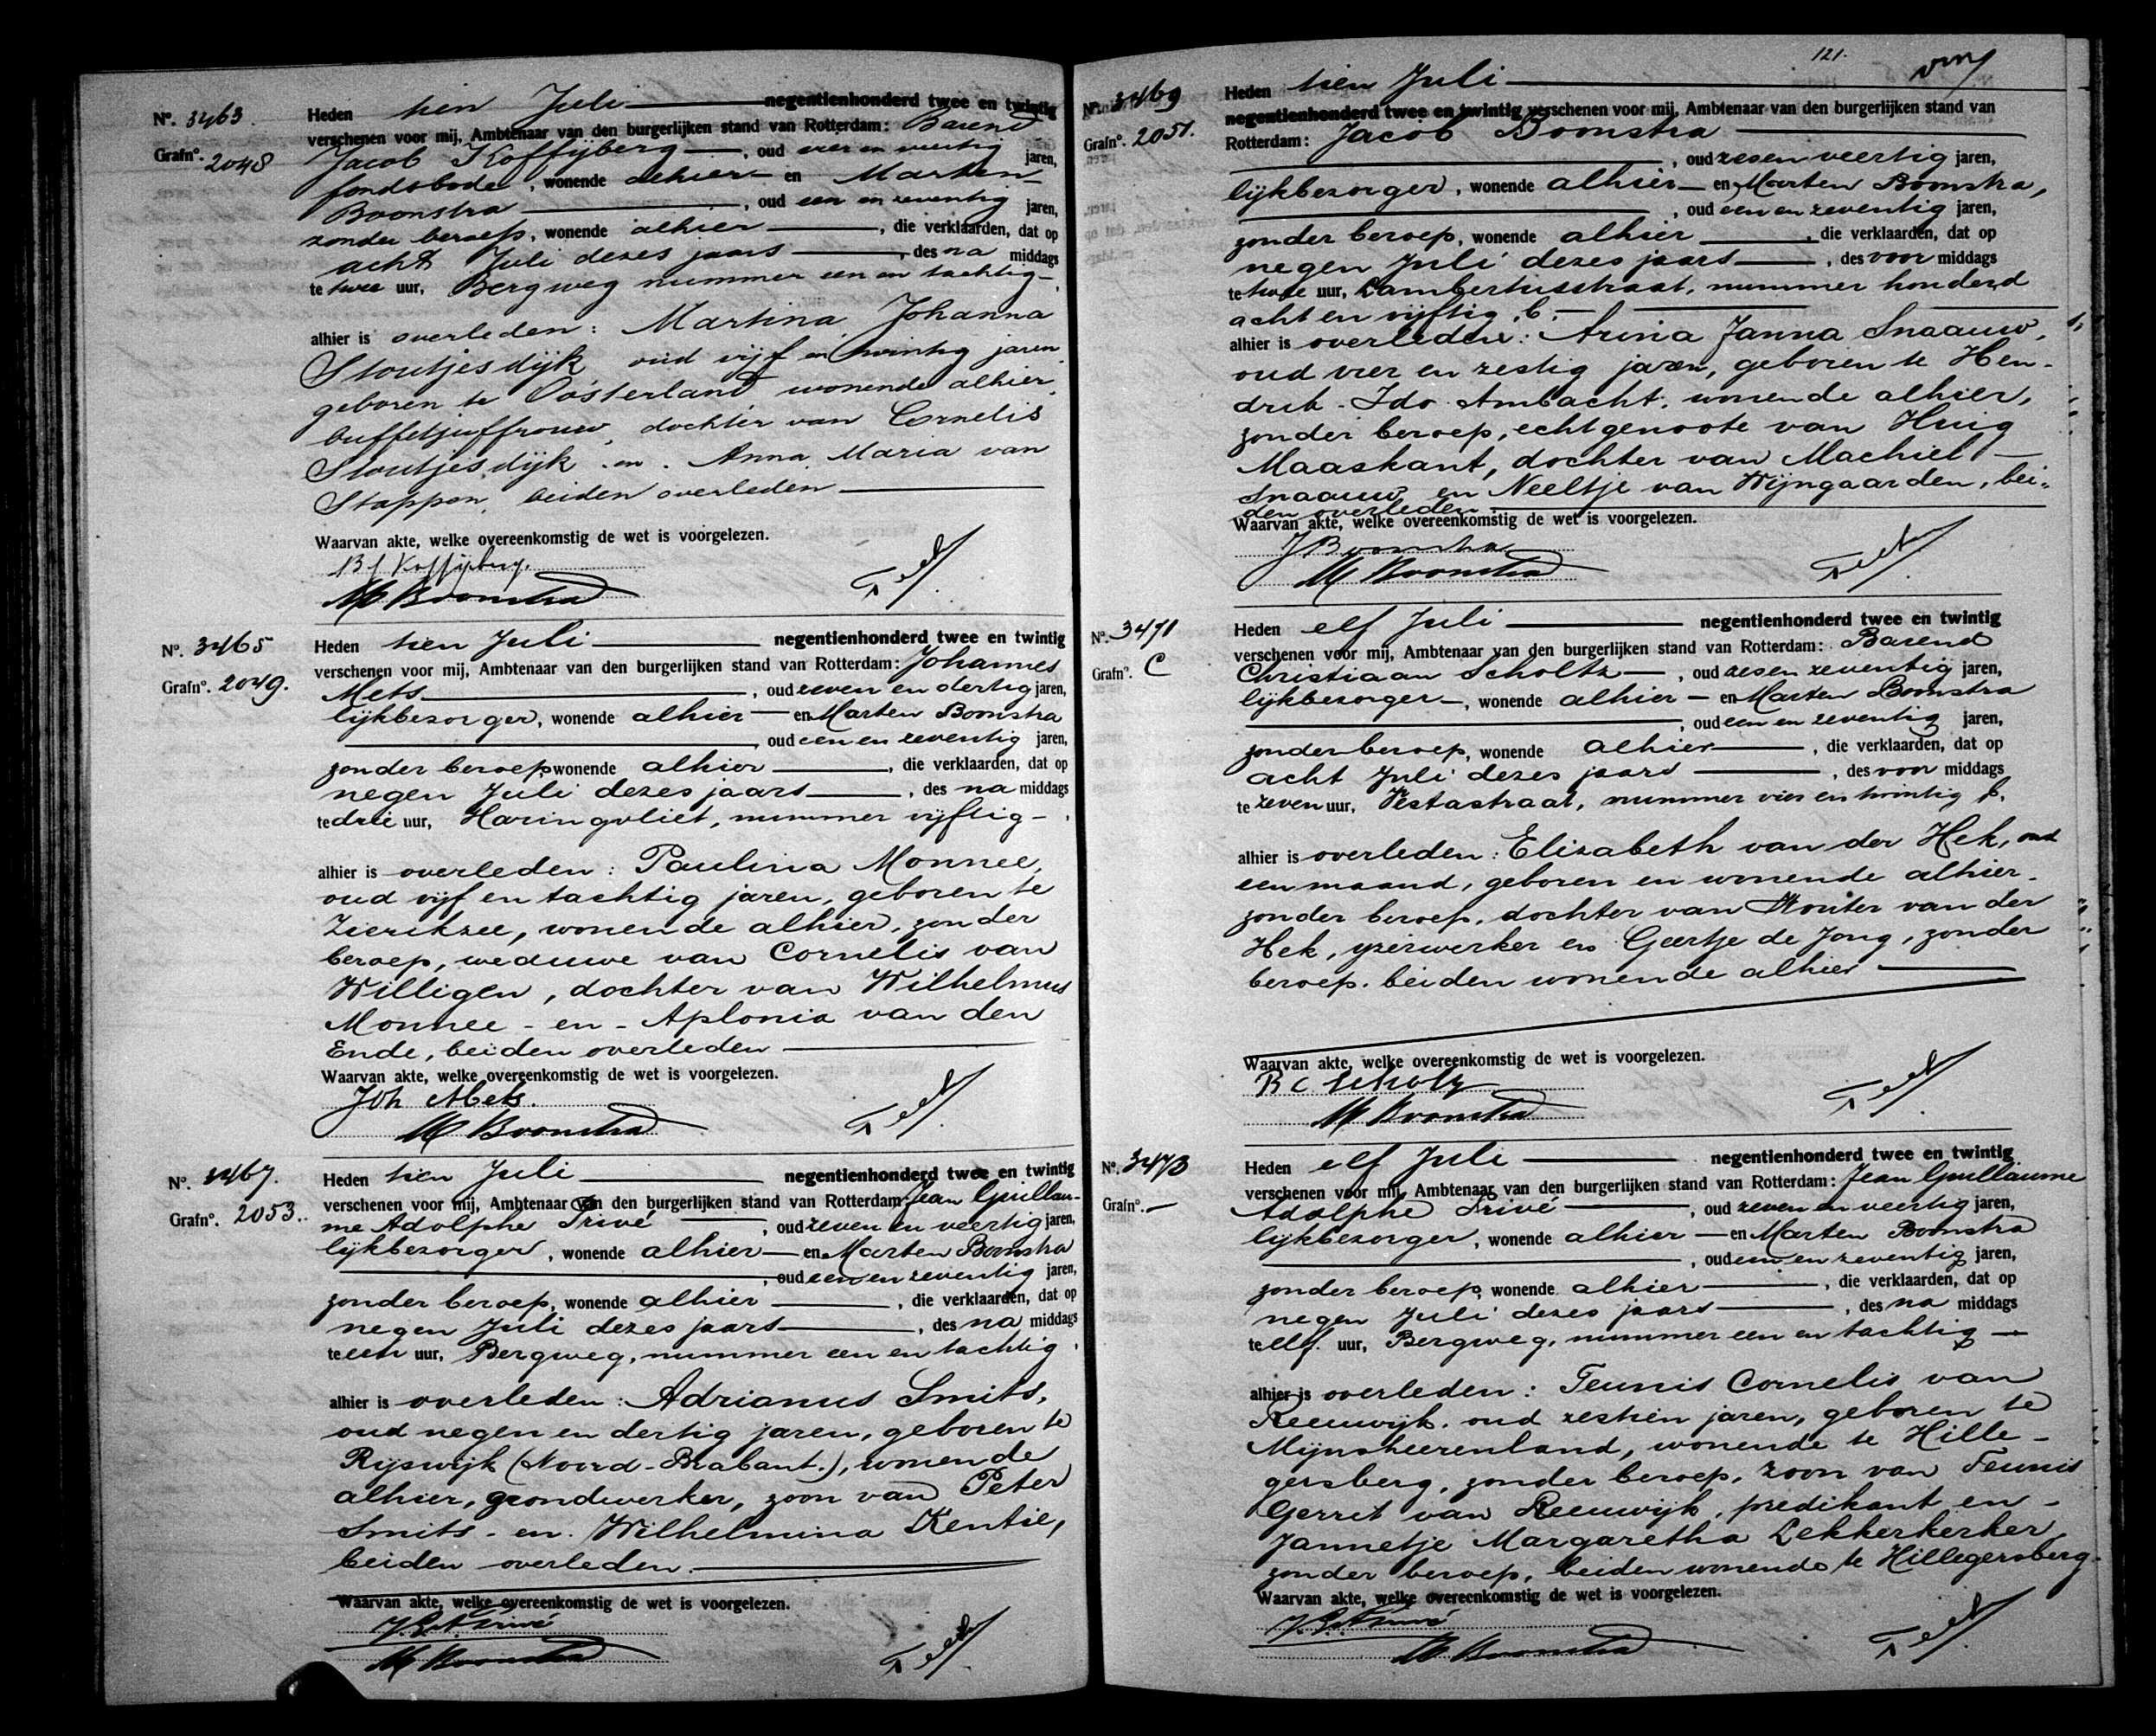 Nº. 3463.
Grafnº. 2048
Heden tien Juli negentienhonderd twee en twintig
verschenen voor mij, Ambtenaar van den burgerlijken stand van Rotterdam: Barend
Jacob Koffijberg, oud vier en veertig jaren,
fondsbode, wonende alhier en Marten
Boonstra, oud een en zeventig jaren,
zonder beroep, wonende alhier, die verklaarden, dat op
acht Juli dezes jaars, des na middags
te twee uur, Bergweg nummer een en tachtig
alhier is overleden: Martina Johanna
Stoutjesdijk oud vijf en twintig jaren
geboren te Oosterland wonende alhier
buffetjuffrouw, dochter van Cornelis
Stoutjesdijk en Anna Maria van
Stappen, beiden overleden
Waarvan akte, welke overeenkomstig de wet is voorgelezen.
BJ Koffijberg.
M Boonstra
Nº. 3465
Grafnº. 2049.
Heden tien Juli negentienhonderd twee en twintig
verschenen voor mij, Ambtenaar van den burgerlijken stand van Rotterdam: Johannes
Mets, oud zeven en dertig jaren,
lijkbezorger, wonende alhier en Marten Boonstra
, oud een en zeventig jaren,
zonder beroep wonende alhier, die verklaarden, dat op
negen Juli dezes jaars, des na middags
te drie uur, Haringvliet, nummer vijftig
alhier is overleden: Paulina Monnee,
oud vijf en tachtig jaren, geboren te
Zierikzee, wonende alhier, zonder
beroep, weduwe van Cornelis van
Willigen, dochter van Wilhelmus
Monnee - en - Aplonia van den
Ende, beiden overleden
Waarvan akte, welke overeenkomstig de wet is voorgelezen.
Joh Mets.
M Boonstra
Nº. 3467.
Grafnº. 2053.
Heden tien Juli negentienhonderd twee en twintig
verschenen voor mij, Ambtenaar van den burgerlijken stand van Rotterdam: Jean Guillau-
me Adolphe Privé, oud zeven en veertig jaren,
lijkbezorger, wonende alhier en Marten Boonstra
, oud een en zeventig jaren,
zonder beroep, wonende alhier, die verklaarden, dat op
negen Juli dezes jaars, des na middags
te een uur, Bergweg, nummer een en tachtig
alhier is overleden: Adrianus Smits,
oud negen en dertig jaren, geboren te
Rijswijk (Noord-Brabant.), wonende
alhier, grondwerker, zoon van Peter
Smits - en. Wilhelmina Kentie,
beiden overleden.
Waarvan akte, welke overeenkomstig de wet is voorgelezen.
J.G.A. Privé
M Boonstra
121.
Nº. 3469
Grafnº. 2051.
Heden tien Juli
negentienhonderd twee en twintig verschenen voor mij, Ambtenaar van den burgerlijken stand van
Rotterdam: Jacob Boonstra
, oud zes en veertig jaren,
lijkbezorger, wonende alhier en Marten Boonstra,
, oud een en zeventig jaren,
zonder beroep, wonende alhier, die verklaarden, dat op
negen Juli dezes jaars, des voor middags
te twee uur, Lambertusstraat, nummer honderd
acht en vijftig b.
alhier is overleden: Arina Janna Snaauw,
oud vier en zestig jaren, geboren te Hen-
drik-Ido Ambacht, wonende alhier,
zonder beroep, echtgenoote van Huig
Maaskant, dochter van Machiel
Snaauw en Neeltje van Wijngaarden, bei-
den overleden
Waarvan akte, welke overeenkomstig de wet is voorgelezen.
J Boonstra
M Boonstra
Nº. 3471
Grafnº. C
Heden elf Juli negentienhonderd twee en twintig
verschenen voor mij, Ambtenaar van den burgerlijken stand van Rotterdam: Barend
Christiaan Scholtz, oud zes en zeventig jaren,
lijkbezorger, wonende alhier en Marten Boonstra
, oud een en zeventig jaren,
zonder beroep, wonende alhier, die verklaarden, dat op
acht Juli dezes jaars, des voor middags
te zeven uur, Vestastraat, nummer vier en twintig b.
alhier is overleden: Elizabeth van der Hek, oud
een maand, geboren en wonende alhier.
zonder beroep, dochter van Wouter van der
Hek, ijzerwerker en Geertje de Jong, zonder
beroep. beiden wonende alhier
Waarvan akte, welke overeenkomstig de wet is voorgelezen.
B C Scholtz
M Boonstra
Nº. 3473
Grafnº. —
Heden elf Juli negentienhonderd twee en twintig
verschenen voor mij, Ambtenaar van den burgerlijken stand van Rotterdam: Jean Guillaume
Adolphe Privé, oud zeven en veertig jaren,
lijkbezorger, wonende alhier en Marten Boonstra
, oud een en zeventig jaren,
zonder beroep, wonende alhier, die verklaarden, dat op
negen Juli dezes jaars, des na middags
te elf. uur, Bergweg, nummer een en tachtig
alhier is overleden: Teunis Cornelis van
Reeuwijk, oud zestien jaren, geboren te
Mijnsheerenland, wonende te Hille-
gersberg, zonder beroep, zoon van Teunis
Gerrit van Reeuwijk, predikant en
Jannetje Margaretha Lekkerkerker
zonder beroep, beiden wonende te Hillegersberg.
Waarvan akte, welke overeenkomstig de wet is voorgelezen.
J.G.A. Privé
M Boonstra